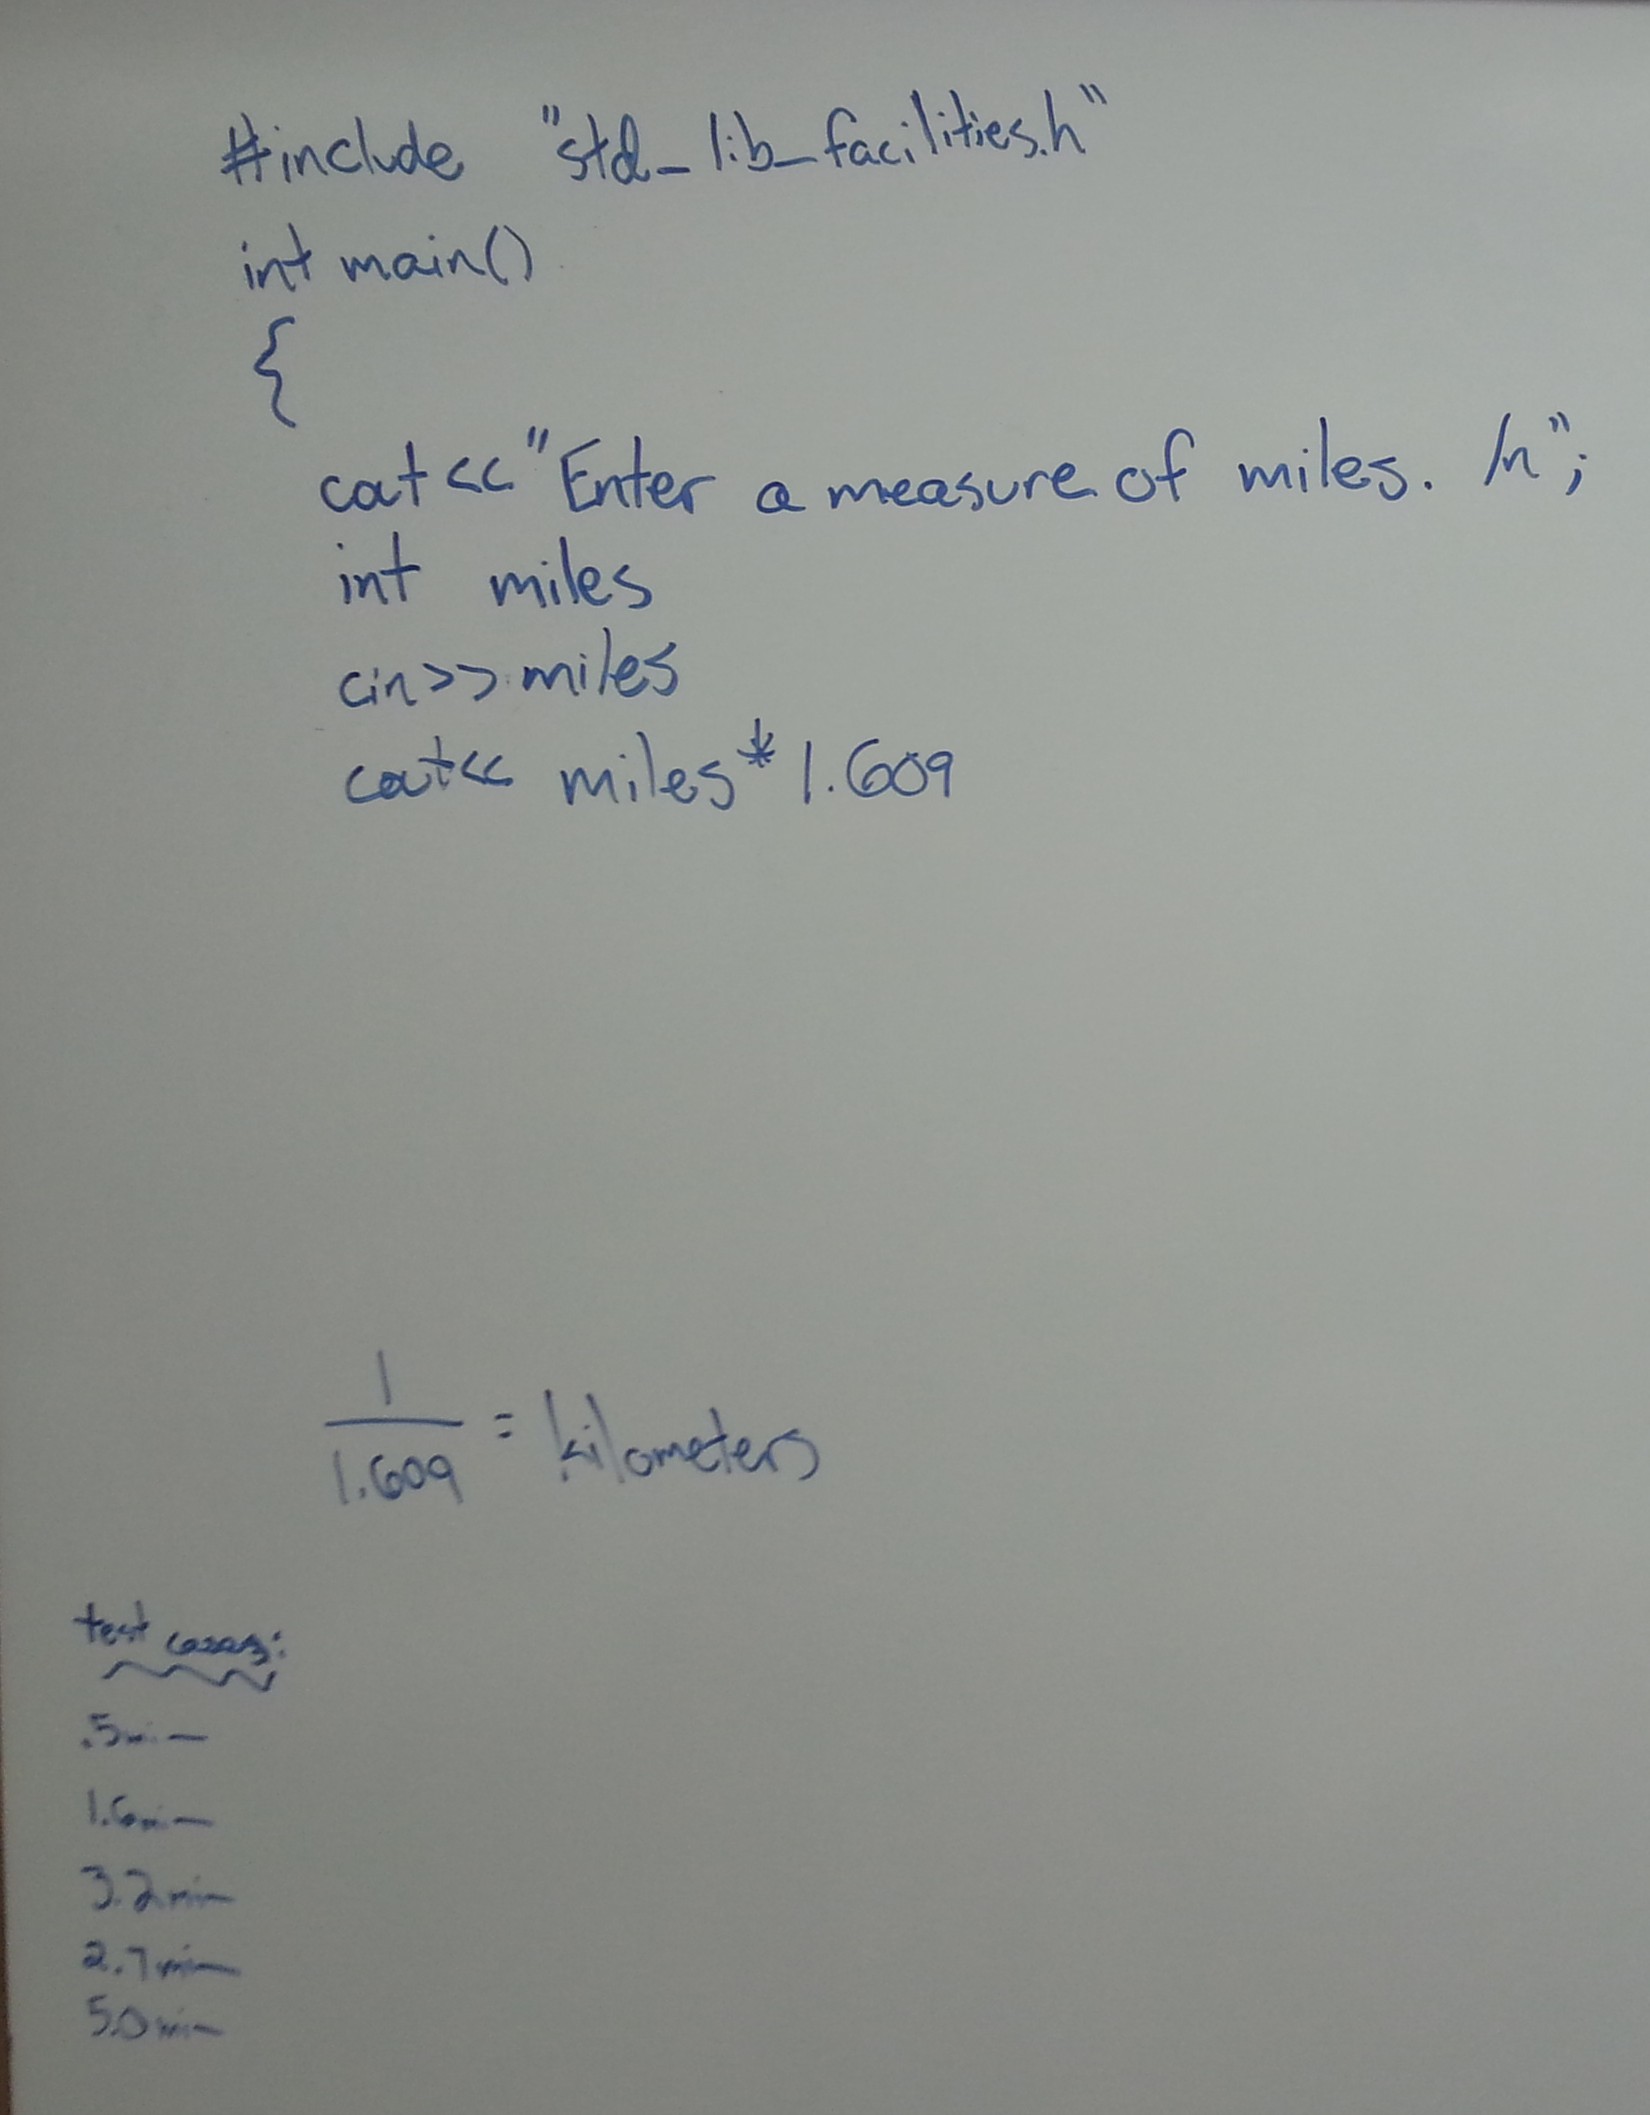 #include "std_lib_facilities.h"
int main()
{
cout<<"Enter a measure of miles. /n";
int miles
cin>>miles
cout<< miles*1.609
1
1.609 = kilometers
test cases:
.5
1.6
3.2
2.7
5.0